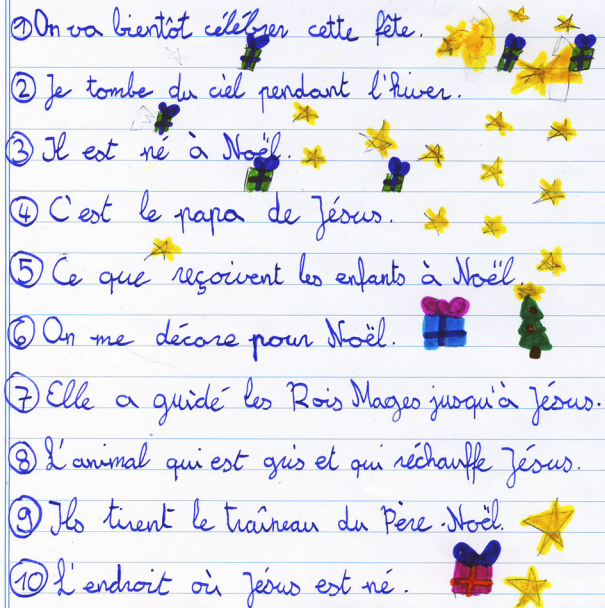 ① On va bientôt célébrer cette fête.
② Je tombe du ciel pendant l'hiver.
③ Il est né à Noël.
④ C'est le papa de Jésus.
⑤ Ce que reçoivent les enfants à Noël.
⑥ On me décore pour Noël.
⑦ Elle a guidé les Rois Mages jusqu'à Jésus.
⑧ L'animal qui est gris et qui réchauffe Jésus.
⑨ Ils tirent le traîneau du Père-Noël.
⑩ L'endroit où Jésus est né.